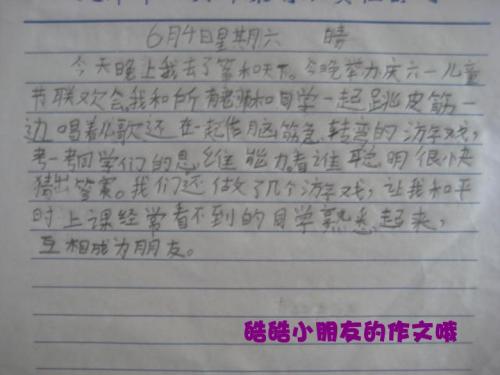 6月4日星期六 晴
今天晚上我去了答和天下。今晚举办庆六一儿童
节联欢会,我和所有老师和同学一起跳皮筋一
边唱着儿歌还在一起作脑筋急转弯的游戏,
考一考同学们的思维能力看谁聪明很快
猜出答案。我们还做了几个游戏,让我和平
时上课经常看不到的同学熟悉起来,
互相成为朋友。
酷酷小朋友的作文哦